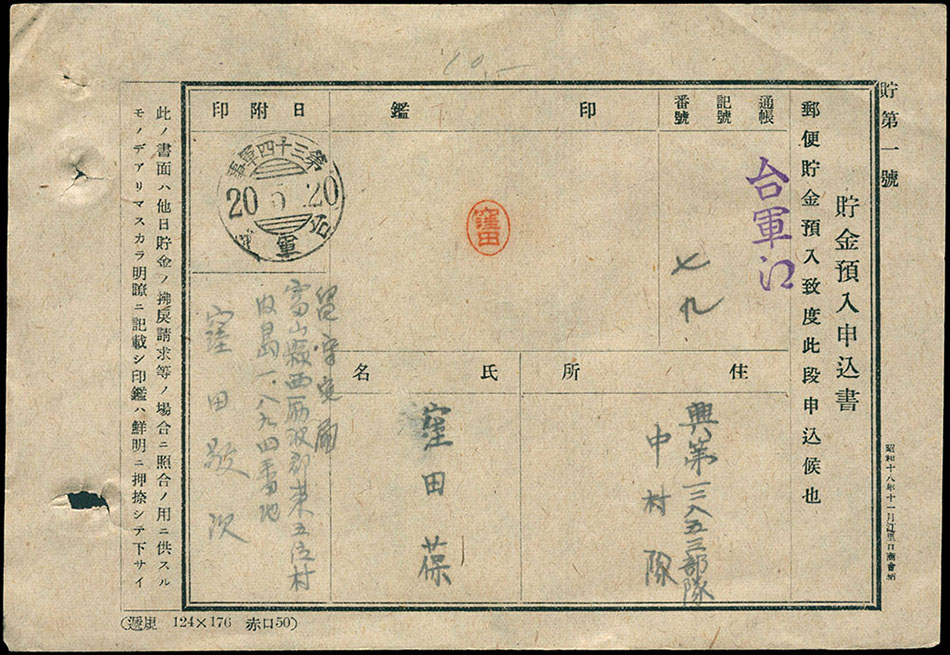 貯第一號
貯金預入申込書
郵便貯金預入致度此段申込候也
通帳
記號
番號
台軍江
七九
印鑑
窪田
日附印
第三十四軍事
20 5 .20
軍
住所
興第一三八五三部隊
中村隊
氏名
窪田葆
留守宅
富山縣西礪波郡東五位村
一八九四番地
窪田敬次
此ノ書面ハ他日貯金ノ拂戾請求等ノ場合ニ照合ノ用ニ供スル
モノデアリマスカラ明瞭ニ記載シ印鑑ハ鮮明ニ押捺シテ下サイ
昭和十八年十一月
124×176 赤口50)